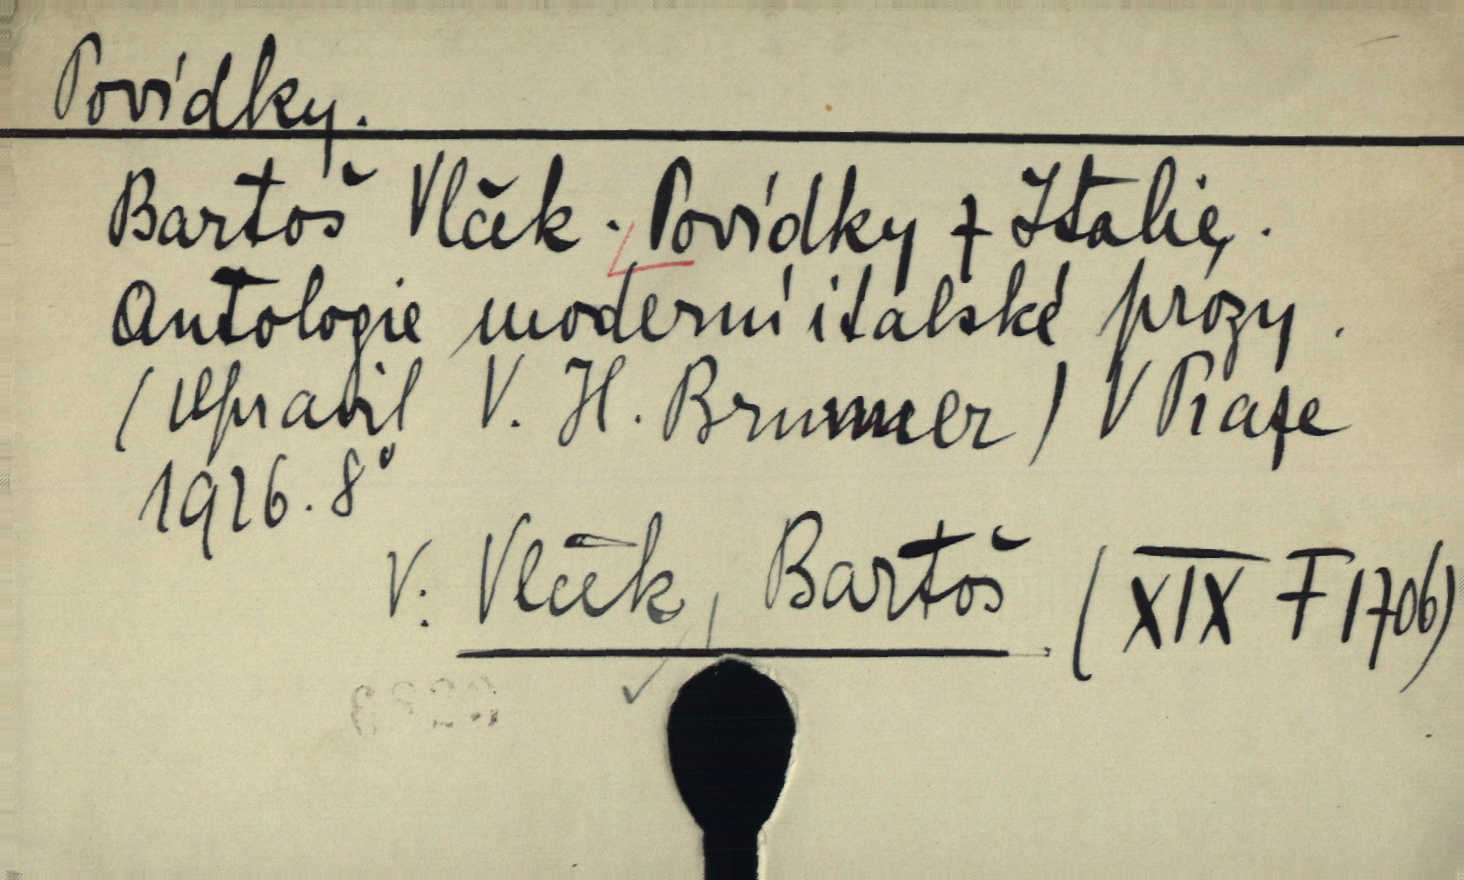 Povídky.
Bartoš Vlček. Povídky z Italie,.
Antologie moderní italské prózy.
(Upravil V. H. Brunner) V Praze
1926. 8°
V: Vlček, Bartoš (XIX F 1706)